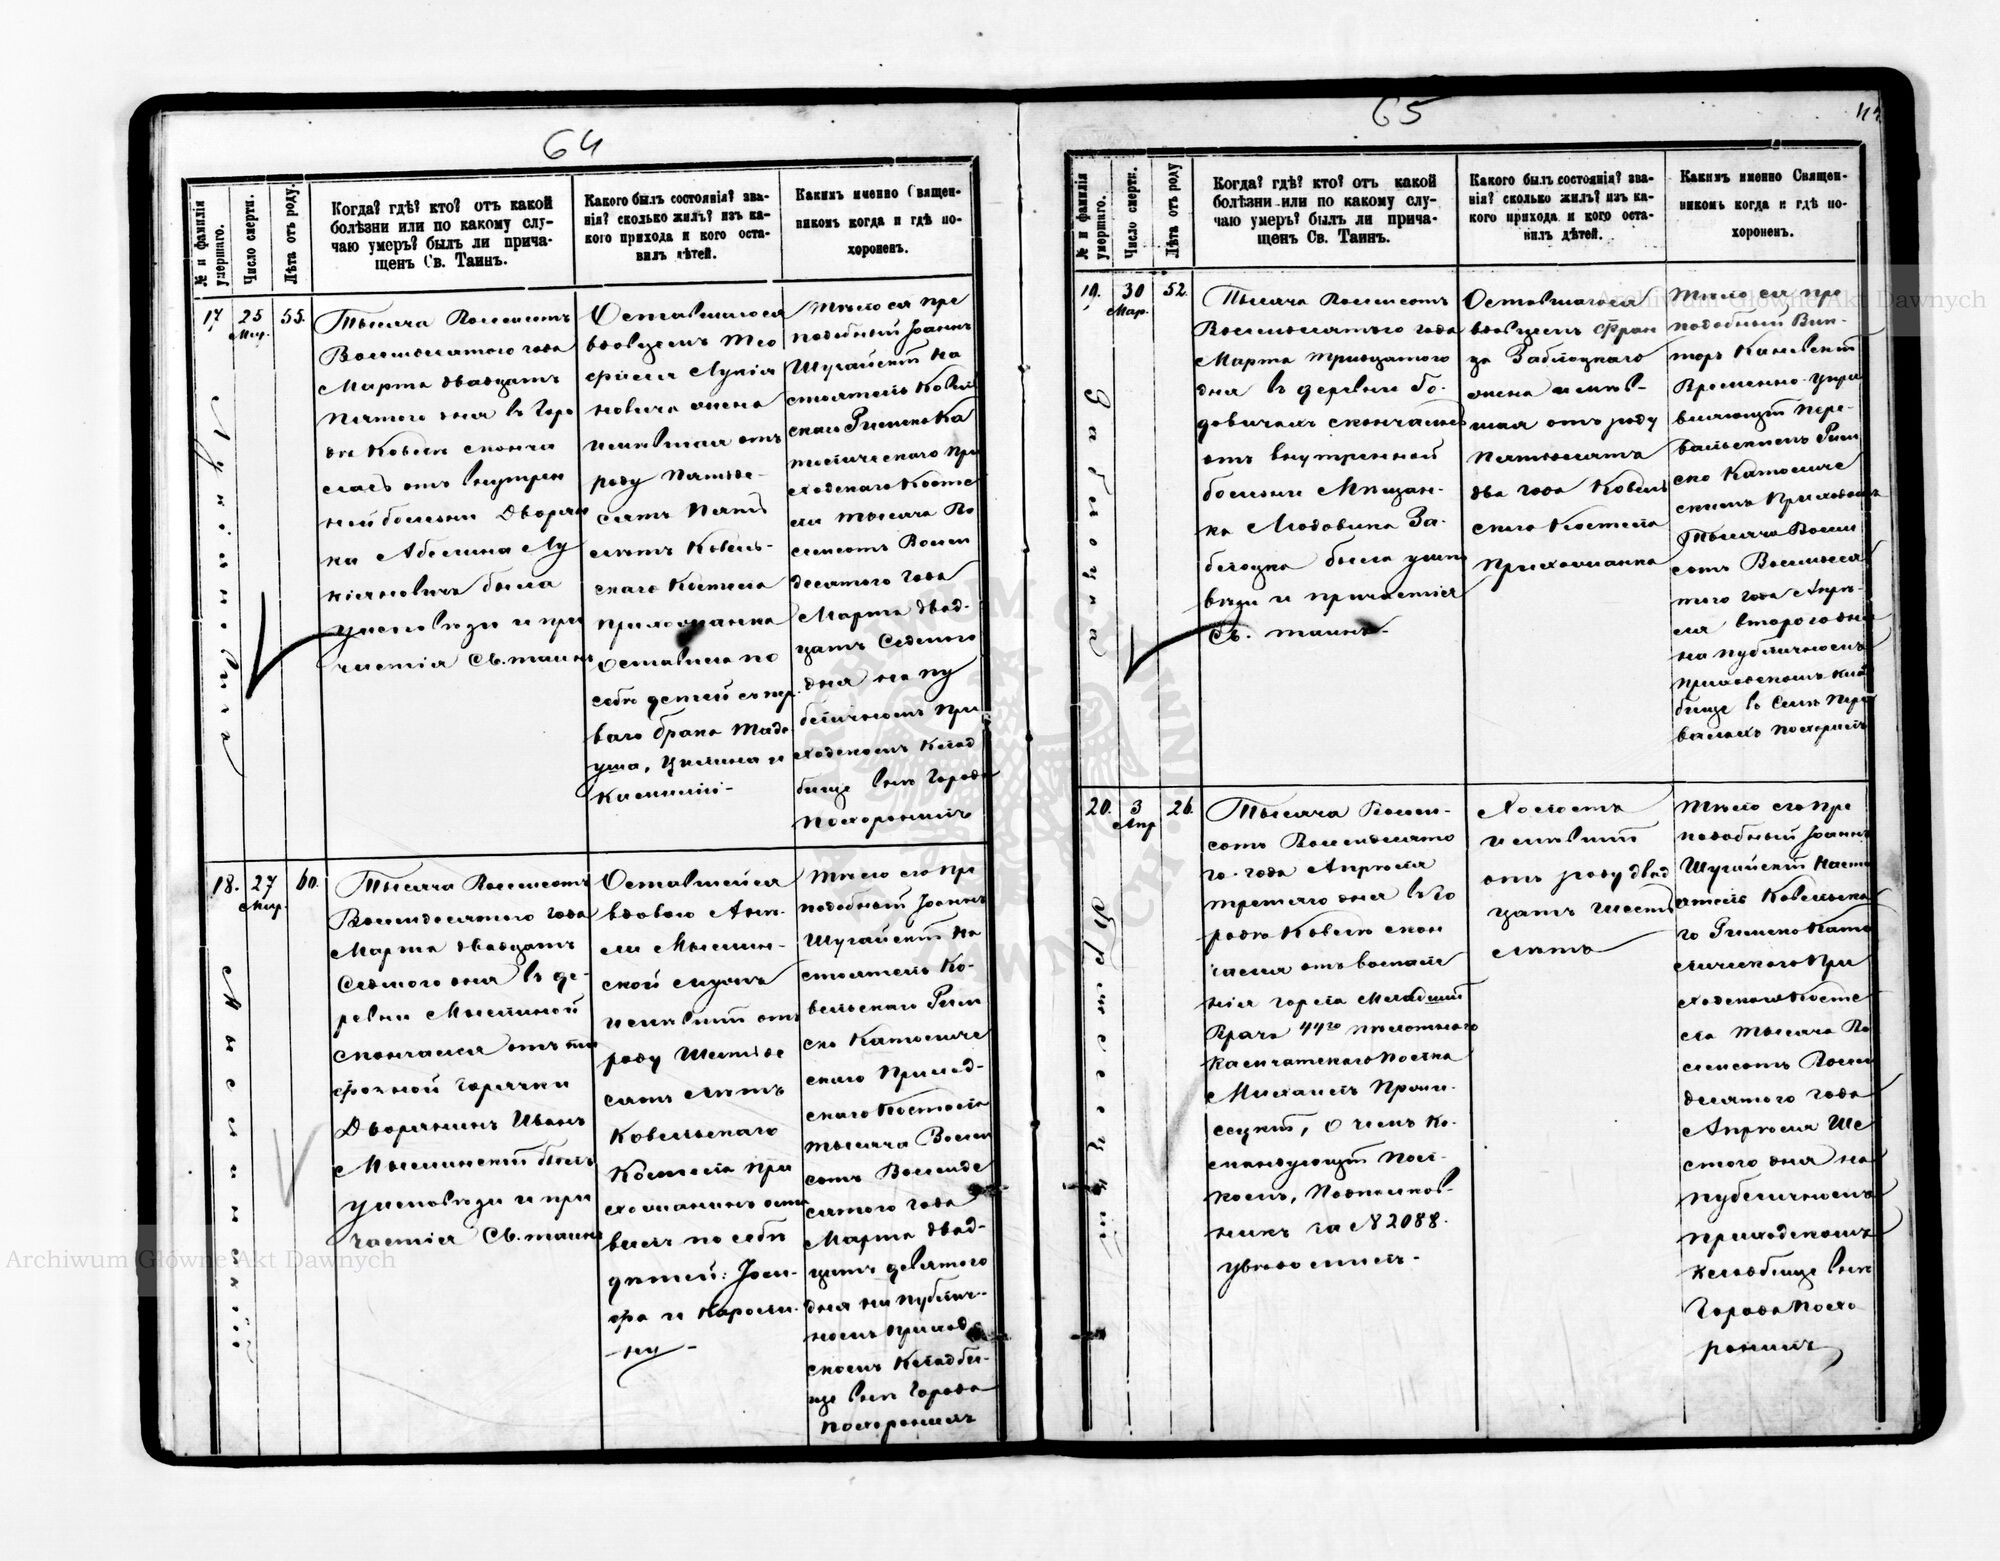 64
№ и фамилія умершаго.
Число смерти.
Лѣта отъ роду.
Когда? гдѣ? кто? отъ какой
болѣзни или по какому слу-
чаю умеръ? былъ ли прича-
щенъ Св. Таинъ.
Какого былъ состоянія? зва-
нія? сколько жилъ? изъ ка-
кого прихода и кого оста-
вилъ дѣтей.
Какимъ именно Священ-
никомъ когда и гдѣ по-
хороненъ.
17
25
Мар.
55.
Тысяча Восемсотъ
Восемдесятого года
Марта двадцать
Пятого дня въ Горо
дѣ Ковлѣ сконча
лась отъ внутрен
ней болезни Дворян
ка Абелина Лу
кіяновичъ была
исповѣди и при
частія Св. таинъ
Оставшагося
вдовцемъ Тео
фила Лукія
новича жена
имѣвшая отъ
роду Пятьде-
сятъ Пять
лѣтъ Ковель-
скаго Костела
прихожанка
Оставила по
себѣ детей съ пер
ваго брака Таде
уша, и
Камиллій-
Тѣло ея пре
подобный Іоаннъ
Шугайскій На
стоятель Ковель
скаго Римско Ка
толическаго При
ходскаго Косте
ла тысяча Во
семсотъ Восем
десятого года
Марта двад-
цать Седмого
дня на пу
бличномъ при
ходскомъ клад
бище внѣ Города
похоронилъ
18.
27
Мар.
60.
Тысяча Восемсотъ
Восемдесятого года
Марта двадцать
Седмого дня въ де-
ревни Мысминой
скончался отъ ти
фозной горячки
Дворянинъ Иванъ
Мысминскій былъ
исповѣди и при
частія Св. таинъ
Оставшейся
вдовою Ан-
ели Мысмин-
ской мужъ
имѣвшій отъ
роду Шестьде
сятъ лѣтъ
Ковельскаго
Костела при
хожанинъ оста
вилъ по себѣ
дѣтей: Іоси-
фа и Кароли-
ну-
Тѣло его пре
подобный Іоаннъ
Шугайскій На
стоятель Ко-
вельскаго Рим
ско Католиче
скаго Приход-
скаго Костела
тысяча Восем
сотъ Восемде
сятого года
Марта двад-
цать девятого
дня на публич-
номъ приход
скомъ кладби-
ще внѣ Города
похоронилъ
65
№ и фамилія умершаго.
Число смерти.
Лѣта отъ роду
Когда? гдѣ? кто? отъ какой
болѣзни или по какому слу-
чаю умеръ? былъ ли прича-
щенъ Св. Таинъ.
Какого былъ состоянія? зва-
нія? сколько жилъ? изъ ка-
кого прихода и кого оста-
вилъ дѣтей.
Какимъ именно Священ-
никомъ когда и гдѣ по-
хороненъ.
19.
30
Мар.
52.
Тысяча Восемсотъ
Восемдесятого года
Марта тридцатого
дня въ деревни Бо-
довичахъ скончалась
отъ внутренной
болезни Мѣщан-
ка Людовика За-
блоцка была испо
вѣди и причастія
Св. таинъ-
Оставшагося
вдовцемъ Фран
ца Заблоцкаго
жена имѣв-
шая отъ роду
Пятьдесятъ
два года Ковель
скаго Костела
прихожанка
Тѣло ея пре
подобный Вик-
торъ
Временно упра
вляющій Пере-
вальскимъ Рим
ско Католиче
скимъ Приходомъ
Тысяча Восем
сотъ Восемдеся
того года Апрѣ-
ля второго дня
на публичномъ
приходскомъ клад
бище въ Селѣ Пере
валахъ похоронилъ
20.
3
Апр
26.
Тысяча Восем-
сотъ Восемдесято
го года Апреля
третяго дня въ Го
родѣ Ковлѣ скон
чался отъ воспале
нія горла младшій
Врачъ 44го пѣхотнаго
Камчатскаго полка
Михаилъ
, о чемъ ко-
мандующій Пол-
комъ, Подполков-
никъ за №2088.
увѣдомилъ-
Холостъ
имѣвшій
отъ роду двад
цать шесть
лѣтъ
Тѣло его пре
подобный Іоаннъ
Шугайскій Насто
ятель Ковельска
го Римско Като
лическаго При
ходскаго Косте
ла тысяча Во
семсотъ Восем
десятого года
Апреля Ше
стого дня на
публичномъ
приходскомъ
кладбище внѣ
Города похо
ронилъ
Archiwum Główne Akt Dawnych
Archiwum Główne Akt Dawnych